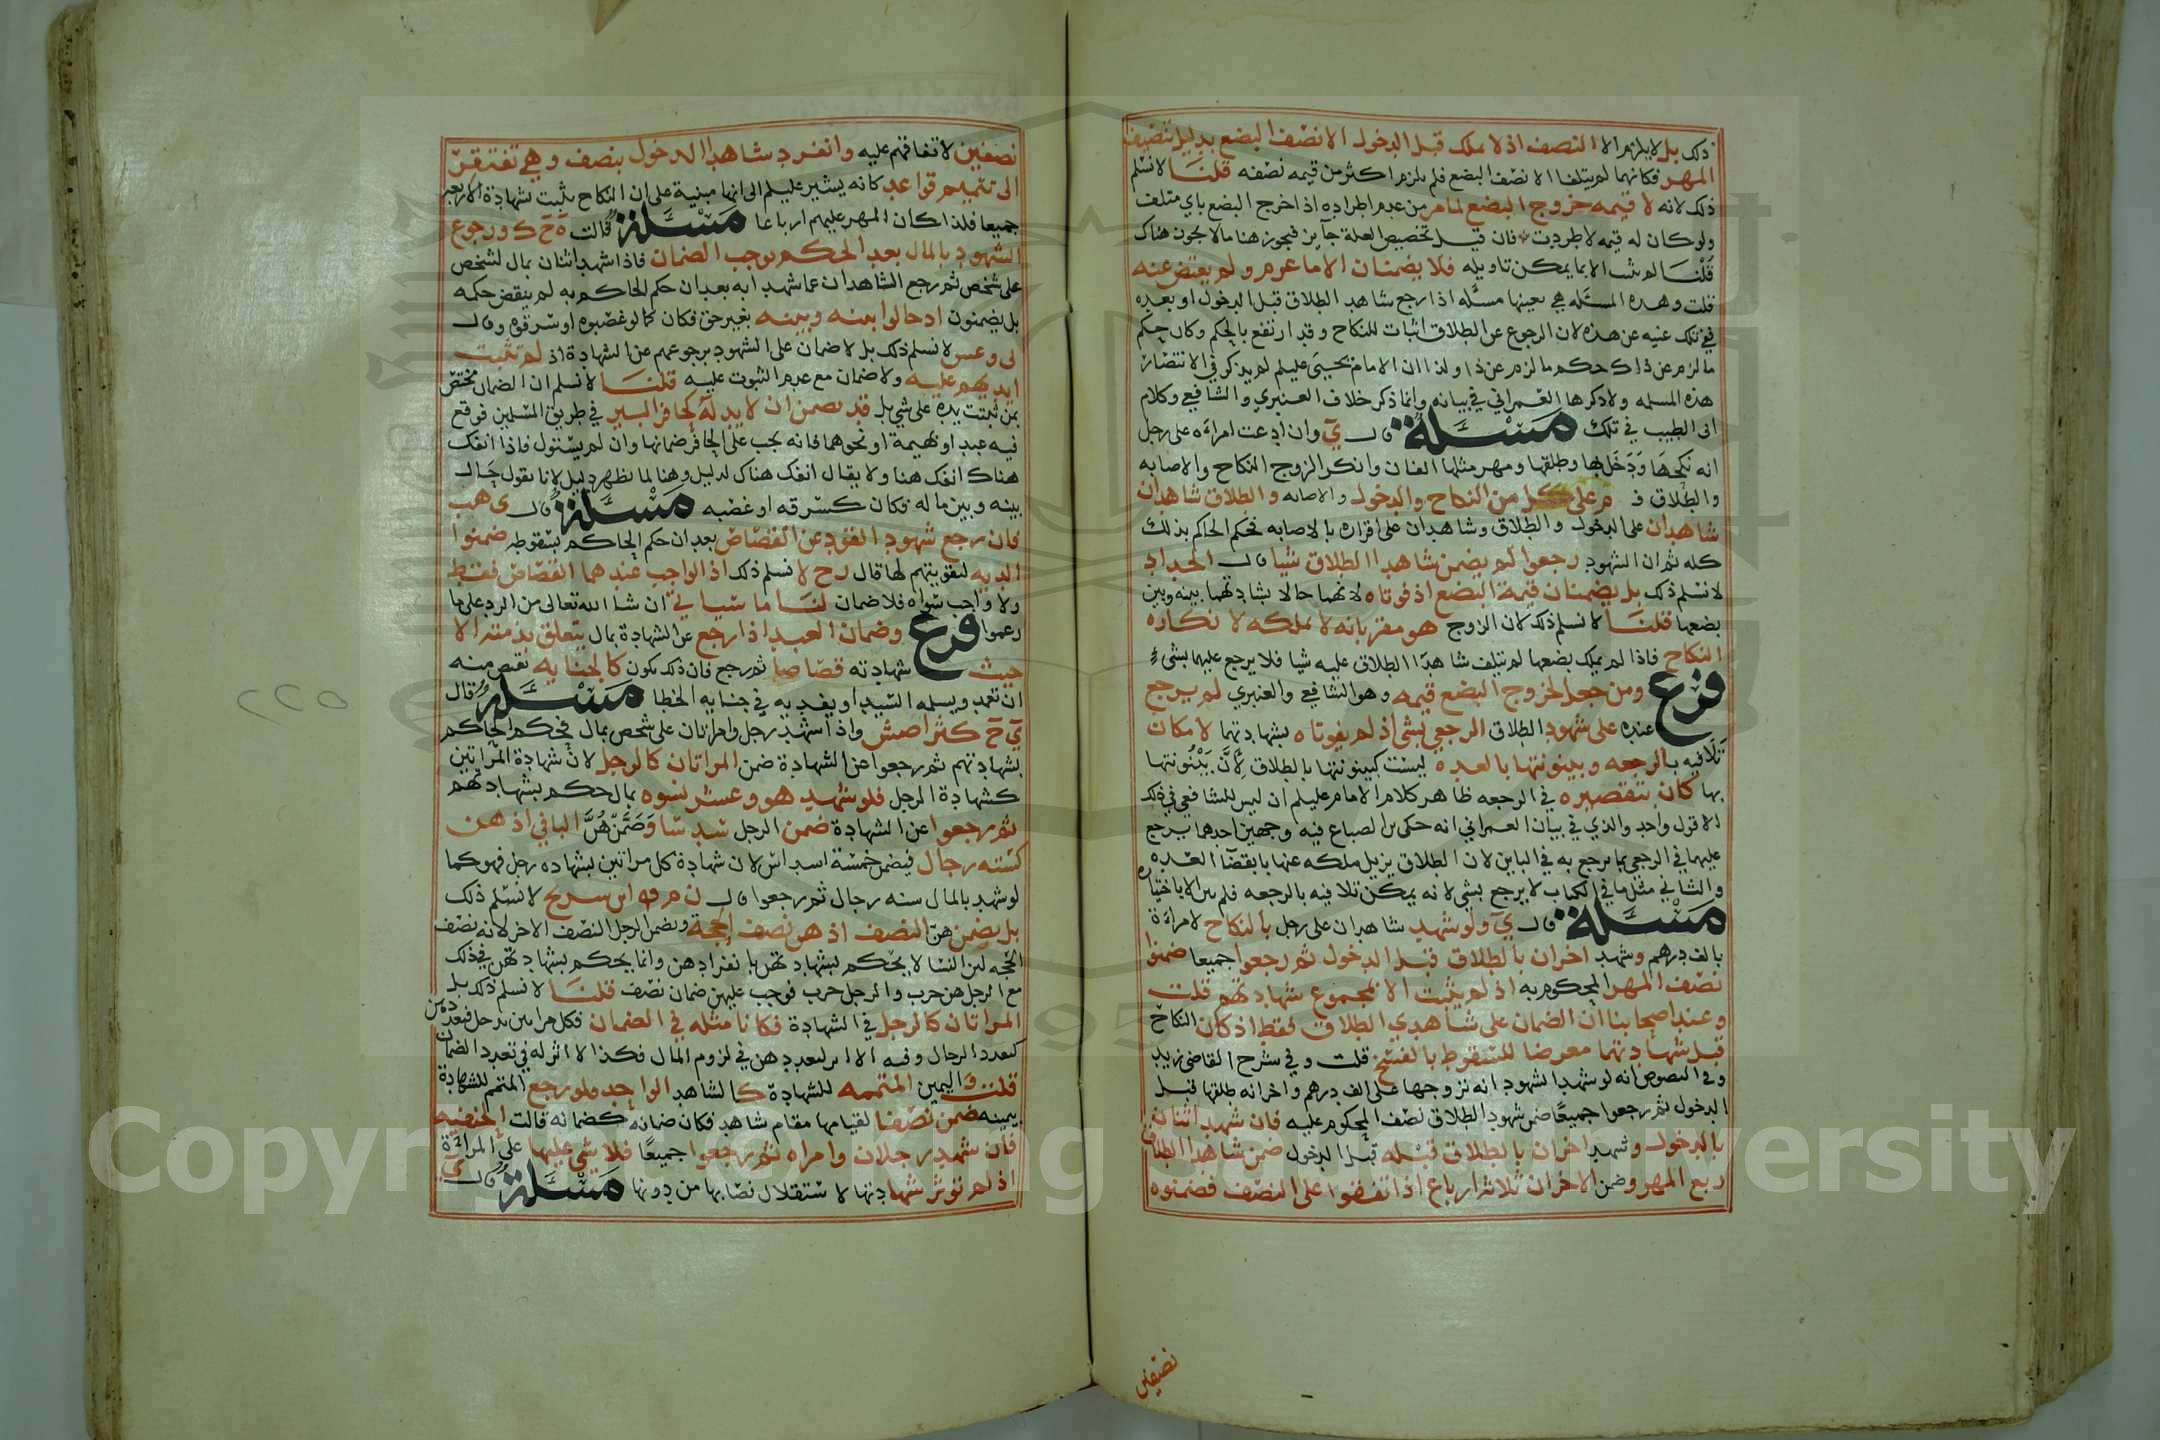 ذلك بل لا يلزم الا النصف اذ لا يملك قبل الدخول الا نصف البضع بدليل تنصيف
المهر فكانهما لم يتلفا الا نصف البضع فلم يلزم اكثر من قيمه نصفه قلنا لا نسلم
ذلك لانه لا قيمه لخروج البضع لما مر من عدم اطراده اذا خرج البضع باي متلف
ولو كان له قيمه لاطردت فان قيل تخصيص العلة جايز فيجوز هنا ما لا يجوز هناك
قلنا لم يثبت الا بما يمكن تاويله فلا يضمنان الا ما غرم ولم يعتض عنه
قلت وهذه المسئله هي بعينها مسئله اذا رجع شاهدا الطلاق قبل الدخول او بعده
ففي تلك غنيه عن هذه لان الرجوع عن الطلاق اثبات للنكاح وقد ارتفع بالحكم وكان حكم
ما لزم عن ذلك حكم ما لزم عن ذا ولذا ان الامام يحيى عليلم لم يذكر في الانتصار
هذه المسله ولا ذكرها العمراني في بيانه وانما ذكر خلاف العنبري والشافعي وكلام
ابى الطيب في تلك مسئلة قال ي وان ادعت امراه على رجل
انه نكحها ودخل بها وطلقها ومهر مثلها الفان وانكر الزوج النكاح والاصابه
والطلاق م على كل من النكاح والدخول والاصابه والطلاق شاهدان
شاهدان على الدخول والطلاق وشاهدان على اقراره بالاصابه فحكم الحاكم بذلك
كله ثم ان الشهود رجعوا لم يضمن شاهدا الطلاق شيا قال الحداد
لا نسلم ذلك بل يضمنان قيمة البضع اذ فوتاه لانهما حالا بشادتهما بينه وبين
بضعها قلنا لا نسلم ذلك لان الزوج هو مقر بانه لا يملكه لانكاره
النكاح فاذا لم يملك بضعها لم يتلف شاهدا الطلاق عليه شيا فلا يرجع عليهما بشيء
فرع ومن جعل لخروج البضع قيمه وهو الشافعي والعنبري لم يرجع
عنده على شهود الطلاق الرجعي بشي اذ لم يفوتاه بشهادتهما لامكان
تلافيه بالرجعه وبينونتها بالعده ليست كبينونتها بالطلاق لان بينونتها
بها كان بتقصيره في الرجعه ظاهر كلام الامام عليلم ان ليس للشافعي في ذلك
الا قول واحد والذي في بيان العمراني انه حكى بن الصباغ فيه وجهين احدهما يرجع
عليهما في الرجعي بما يرجع به في الباين لان الطلاق يزيل ملكه عنها بانقضا العده
والثاني مثل ما في الكتاب لا يرجع بشي لانه يمكن تلافيه بالرجعه فلم الا باختياره
مسئلة قال ي ولو شهد شاهدان على رجل بالنكاح لامراة
بالف درهم وشهد اخران بالطلاق قبل الدخول ثم رجعوا جميعا ضمنوا
نصف المهر المحكوم به اذ لم يثبت الا بمجموع شهادتهم قلت
وعند اصحابنا ان الضمان على شاهدي الطلاق فقط اذ كان النكاح
قبل شهادتهما معرضا للسقوط بالفسخ قلت وفي شرح القاضي زيد
وفي النصوص انه لو شهد الشهود انه تزوجها على الف درهم واخر انه طلقها قبل
الدخول ثم رجعوا جميعا ضمن شهود الطلاق نصف المحكوم عليه فان شهد اثنان
بالدخول وشهد اخران بالطلاق قبله قبل الدخول ضمن شاهدا الطلاق
ربع المهر وضمن الاخران ثلاثه ارباع اذا اتفقوا على النصف فضمنوه
نصفين
نصفين لاتفاقهم عليه وانفرد شاهدا الدخول بنصف وهي تفتقر
الى تتميم قواعد كانه يشير عليلم الى انها مبنية على ان النكاح يثبت بشهادة الاربعة
جميعا فلذا كان المهر عليهم ارباعا مسئلة قالت ه ح ك ورجوع
الشهود بالمال بعد الحكم يوجب الضمان فاذا شهد اثنان بمال لشخص
على شخص ثم رجع الشاهدان عما شهدا به بعد ان حكم الحاكم به لم ينقض حكمه
بل يضمنون اذ حالوا بينه وبينه بغير حق فكان كما لو غصبوه او سرقوه وقال
لا نسلم ذلك بل لا ضمان على الشهود برجوعهم عن الشهادة اذ لم تثبت
ايديهم عليه ولا ضمان مع عدم الثبوت عليه قلنا لا نسلم ان الضمان مختص
بمن ثبتت يده على شي بل قد يضمن ان لا يد له كحافر البير في طريق المسلمين فوقع
فيه عبد او بهيمة او نحوهما فانه يجب على الحافر ضمانها وان لم يستول فاذا انفك
هناك انفك هنا ولا يقال انفك هناك لدليل وهنا لما يظهر دليل لانا نقول حال
بينه وبين ماله فكان كسرقه او غصبه مسئلة قال ى هب
فان رجع شهود العفو عن القصاص بعد ان حكم الحاكم بسقوطه ضمنوا
الديه لتفويتهم لها قال رح لا نسلم ذلك اذ الواجب عندهما القصاص فقط
ولا واجب سواه فلا ضمان لنا ما سياتي ان شا الله تعالى من الرد على ما
زعموا فرع وضمان العبد اذا رجع عن الشهادة بمال يتعلق بذمته الا
حيث شهادته قصاصا ثم رجع فان ذلك يكون كالجنايه نقص منه
ان تعمد ويسلمه السيد او يفديه في جنايه الخطا مسئلة قال
ي ح كثر اصش واذا شهد رجل وامراتان على شخص بمال فحكم الحاكم
بشهادتهم ثم رجعوا عن الشهادة ضمن المراتان كالرجل لان شهادة المراتين
كشهادة الرجل فلو شهد هو وعشر نسوه بمال حكم بشهادتهم
ثم رجعوا عن الشهادة ضمن الرجل سدسا وضمن هن الباقي اذ هن
كسته رجال فيضمن خمسة اسداس لان شهادة كل مراتين بشهاده رجل فهو كما
لو شهد بالمال سته رجال ثم رجعوا قال ن م ف ابن سريج لا نسلم ذلك
بل يضمن هن النصف اذ هو نصف الحجة ويضمن الرجل النصف الاخر لانه نصف
الحجه لان النسا لا يحكم بشهادتهن بانفرادهن وانما يحكم بشهادتهن في ذلك
مع الرجل هن حزب والرجل حزب فوجب عليهن ضمان نصف قلنا لا نسلم ذلك بل
المراتان كالرجل في الشهادة فكانا مثله في الضمان فكل مراتين كرجل فتعددهن
كتعدد الرجال وفيه الا اثر لتعددهن في لزوم المال فكذا لا اثر له في تعدد الضمان
قلت واليمين المتممه للشهادة كالشاهد الواحد فلو رجع المتمم للشهادة
بيمينه ضمن نصفا لقيامها مقام شاهد فكان ضمانه كضمانه قالت الحنفيه
فان شهد رجلان وامراه ثم رجعوا جميعا فلا شي عليها على المراة
اذ لم تؤثر شهادتها لاستقلال نصابها من دونها مسئلة قال ي